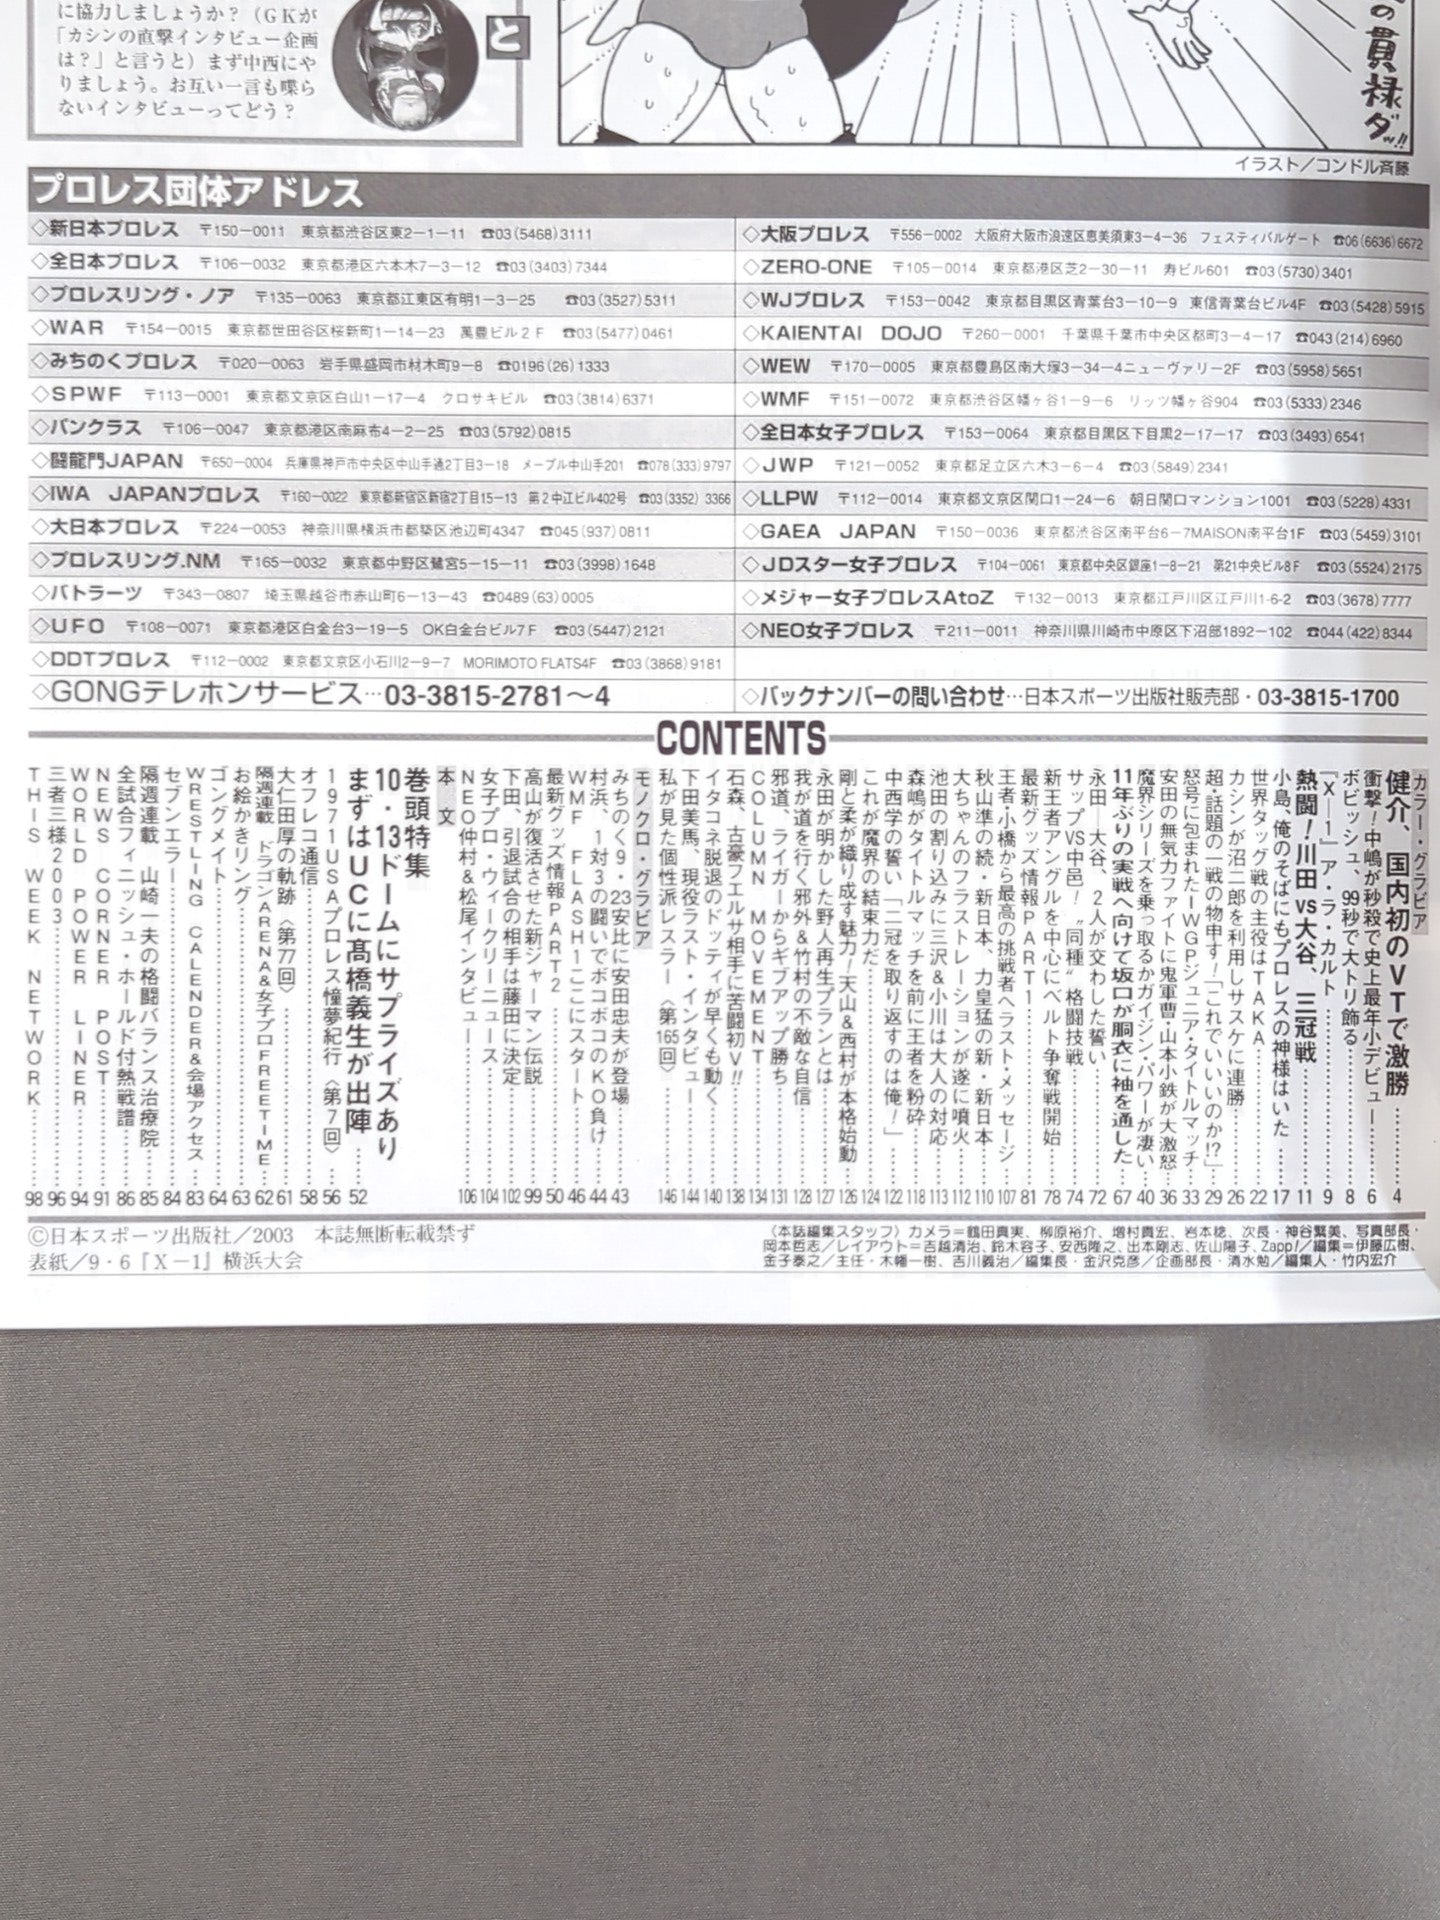 に協力しましょうか？（ＧＫが
「カシンの直撃インタビュー企画
は？」と言うと）まず中西にや
りましょう。お互い一言も喋ら
ないインタビューってどう？
と
の貫禄ダッ!!
イラスト／コンドル斉藤
プロレス団体アドレス
◇新日本プロレス　〒150－0011　東京都渋谷区東2－1－11　☎03(5468)3111
◇全日本プロレス　〒106－0032　東京都港区六本木7－3－12　☎03(3403)7344
◇プロレスリング・ノア　〒135－0063　東京都江東区有明1－3－25　☎03(3527)5311
◇WAR　〒154－0015　東京都世田谷区桜新町1－14－23　萬豊ビル２Ｆ　☎03(5477)0461
◇みちのくプロレス　〒020－0063　岩手県盛岡市材木町9－8　☎0196(26)1333
◇SPWF　〒113－0001　東京都文京区白山1－17－4　クロサキビル　☎03(3814)6371
◇パンクラス　〒106－0047　東京都港区南麻布4－2－25　☎03(5792)0815
◇闘龍門JAPAN　〒650－0004　兵庫県神戸市中央区中山手通2丁目3－18　メープル中山手201　☎078(333)9797
◇IWA　JAPANプロレス　〒160－0022　東京都新宿区新宿2丁目15－13　第２中江ビル402号　☎03(3352)3366
◇大日本プロレス　〒224－0053　神奈川県横浜市都築区池辺町4347　☎045(937)0811
◇プロレスリング.NM　〒165－0032　東京都中野区鷺宮5－15－11　☎03(3998)1648
◇バトラーツ　〒343－0807　埼玉県越谷市赤山町6－13－43　☎0489(63)0005
◇UFO　〒108－0071　東京都港区白金台3－19－5　OK白金台ビル7Ｆ　☎03(5447)2121
◇DDTプロレス　〒112－0002　東京都文京区小石川2－9－7　MORIMOTO FLATS4F　☎03(3868)9181
◇GONGテレホンサービス…03-3815-2781～4
◇大阪プロレス　〒556－0002　大阪府大阪市浪速区恵美須東3－4－36　フェスティバルゲート　☎06(6636)6672
◇ZERO-ONE　〒105－0014　東京都港区芝2－30－11　寿ビル601　☎03(5730)3401
◇WJプロレス　〒153－0042　東京都目黒区青葉台3－10－9　東信青葉台ビル4F　☎03(5428)5915
◇KAIENTAI　DOJO　〒260－0001　千葉県千葉市中央区都町3－4－17　☎043(214)6960
◇WEW　〒170－0005　東京都豊島区南大塚3－34－4ニューヴァリー2F　☎03(5958)5651
◇WMF　〒151－0072　東京都渋谷区幡ヶ谷1－9－6　リッツ幡ヶ谷904　☎03(5333)2346
◇全日本女子プロレス　〒153－0064　東京都目黒区下目黒2－17－17　☎03(3493)6541
◇JWP　〒121－0052　東京都足立区六木3－6－4　☎03(5849)2341
◇LLPW　〒112－0014　東京都文京区関口1－24－6　朝日関口マンション1001　☎03(5228)4331
◇GAEA　JAPAN　〒150－0036　東京都渋谷区南平台6－7MAISON南平台1F　☎03(5459)3101
◇JDスター女子プロレス　〒104－0061　東京都中央区銀座1－8－21　第21中央ビル8Ｆ　☎03(5524)2175
◇メジャー女子プロレスAtoZ　〒132－0013　東京都江戸川区江戸川1-6-2　☎03(3678)7777
◇NEO女子プロレス　〒211－0011　神奈川県川崎市中原区下沼部1892－102　☎044(422)8344
◇バックナンバーの問い合わせ…日本スポーツ出版社販売部・03-3815-1700
CONTENTS
カラー・グラビア
健介、国内初のＶＴで激勝………4
衝撃！中嶋が秒殺で史上最年小デビュー………6
ボビッシュ、99秒で大トリ飾る………8
『Ｘ－１』ア・ラ・カルト………9
熱闘！川田vs大谷、三冠戦………11
小島、俺のそばにもプロレスの神様はいた………17
世界タッグ戦の主役はＴＡＫＡ………22
カシンが沼二郎を利用しサスケに連勝………26
超・話題の一戦の物申す！「これでいいのか!?」………29
怒号に包まれたＩＷＧＰジュニア・タイトルマッチ………33
安田の無気力ファイトに鬼軍曹・山本小鉄が大激怒………36
魔界シリーズを乗っ取るかガイジン・パワーが凄い………40
11年ぶりの実戦へ向けて坂口が胴衣に袖を通した………67
永田―大谷、２人が交わした誓い………72
サップVS中邑！〝同種〟格闘技戦………74
新王者アングルを中心にベルト争奪戦開始………78
最新グッズ情報ＰＡＲＴ１………81
王者・小橋から最高の挑戦者へラスト・メッセージ………107
秋山準の続・新日本、力皇猛の新・新日本………110
大ちゃんのフラストレーションが遂に噴火………112
池田の割り込みに三沢＆小川は大人の対応………113
森嶋がタイトルマッチを前に王者を粉砕………118
中西学の誓い「二冠を取り返すのは俺！」………122
これが魔界の結束力だ………124
剛と柔が織り成す魅力！天山＆西村が本格始動………126
永田が明かした野人再生プランとは………127
我が道を行く邪外＆竹村の不敵な自信………128
邪道、ライガーからギブアップ勝ち………131
ＣＯＬＵＭＮ　ＭＯＶＥＭＥＮＴ………134
石森、古豪フエルサ相手に苦闘初Ｖ!!………138
イタコネ脱退のドッティが早くも動く………140
下田美馬、現役ラスト・インタビュー………144
私が見た個性派レスラー〈第165回〉………146
モノクロ・グラビア
みちのく９・23安比に安田忠夫が登場………43
村浜、１対３の闘いでボコボコのＫＯ負け………44
ＷＭＦ　ＦＬＡＳＨ１ここにスタート………46
最新グッズ情報ＰＡＲＴ２………50
高山が復活させた新ジャーマン伝説………99
下田、引退試合の相手は藤田に決定………102
女子プロ・ウィークリーニュース………104
ＮＥＯ仲村＆松尾インタビュー………106
本　文
巻頭特集
10・13ドームにサプライズあり
まずはＵＣに髙橋義生が出陣………52
１９７１ＵＳＡプロレス憧夢紀行〈第７回〉………56
オフレコ通信………58
大仁田厚の軌跡〈第77回〉………61
隔週連載　ドラゴンＡＲＥＮＡ＆女子プロＦＲＥＥＴＩＭＥ………62
お絵かきリング………63
ゴングメイト………64
ＷＲＥＳＴＬＩＮＧ　ＣＡＬＥＮＤＥＲ＆会場アクセス………83
セブンエラー………84
隔週連載　山崎一夫の格闘バランス治療院………85
全試合フィニッシュ・ホールド付熱戦譜………86
ＮＥＷＳ　ＣＯＲＮＥＲ　ＰＯＳＴ………91
ＷＯＲＬＤ　ＰＯＷＥＲ　ＬＩＮＥＲ………94
三者三様２００３………96
ＴＨＩＳ　ＷＥＥＫ　ＮＥＴＷＯＲＫ………98
©日本スポーツ出版社／2003　本誌無断転載禁ず
表紙／9・6『Ｘ－1』横浜大会
〈本誌編集スタッフ〉カメラ＝鶴田真実、柳原裕介、増村貴宏、岩本稔、次長・神谷繁美、写真部長・
岡本哲志／レイアウト＝吉越清治、鈴木容子、安西隆之、出本剛志、佐山陽子、Zapp!／編集＝伊藤広樹、
金子泰之／主任・木幡一樹、吉川義治／編集長・金沢克彦／企画部長・清水勉／編集人・竹内宏介